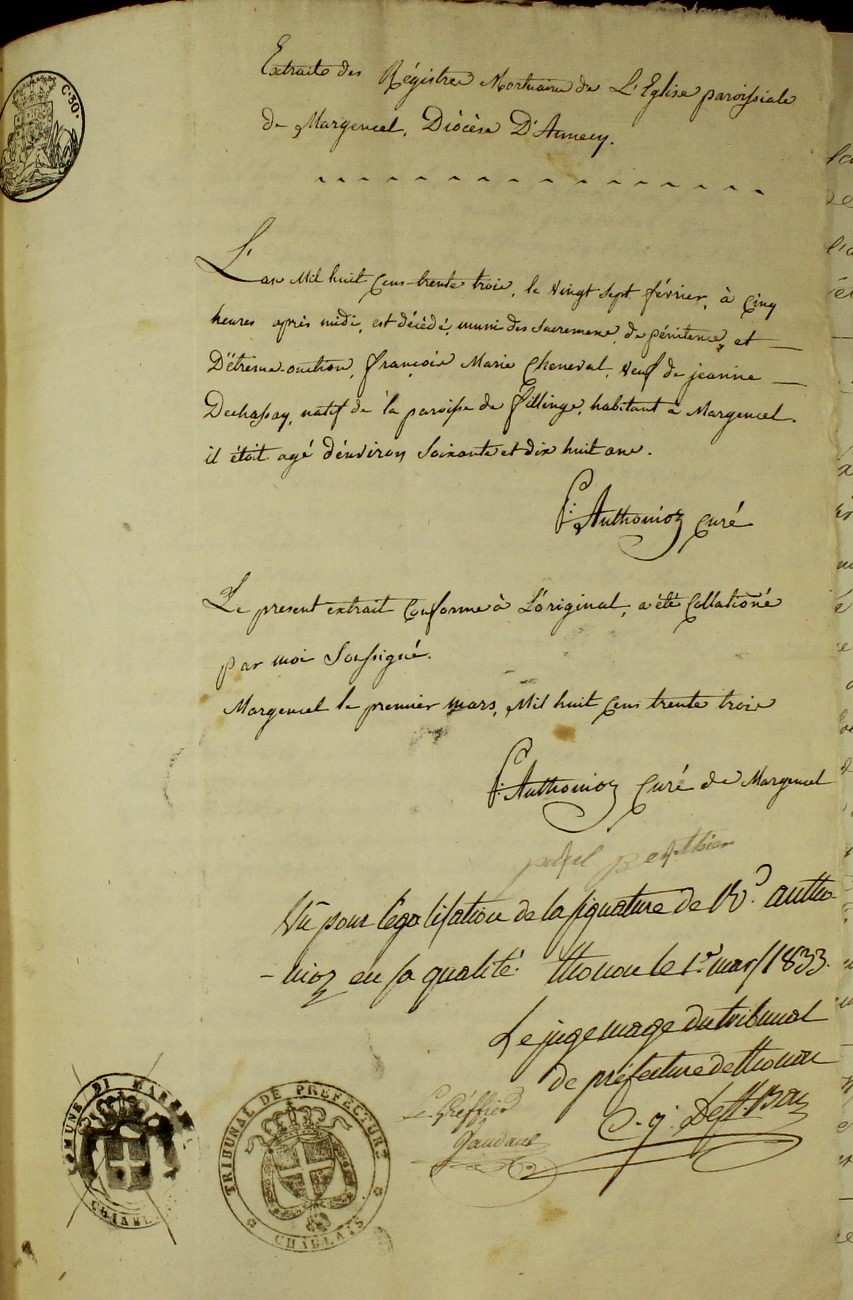 C. 50.
Extraite des Régistres Mortuaires de L'Eglise paroissiale
de Margencel, Diòcèse D'Annecy.
L'an Mil huit Cens trente trois, le vingt sept février, à Cinq
heures après midi, est décédé, muni des Sacremens, de pénitence, et
D'étreme-onction, françois Marie Cheneval, veuf de jeanine
Dechassay, natif de la paroisse de fillinge, habitant à Margencel.
il était agé d'énviron Soixante et dix huit ans.
Anthonioz Curé
Le present extrait Conforme à L'original, a été Collationé
par moi Soussigné.
Margencel le premier mars, Mil huit Cens trente trois
Anthonioz Curé de Margencel
Vû pour légalisation de la signature de Rd. antho-
-nioz en sa qualité. thonon le 1er mars 1833.
Le juge mage du tribunal
de préfecture de thonon
Le Greffier
COMUNE DI MAR
CHIABL
TRIBUNAL DE PREFECTURE
CHABLAIS